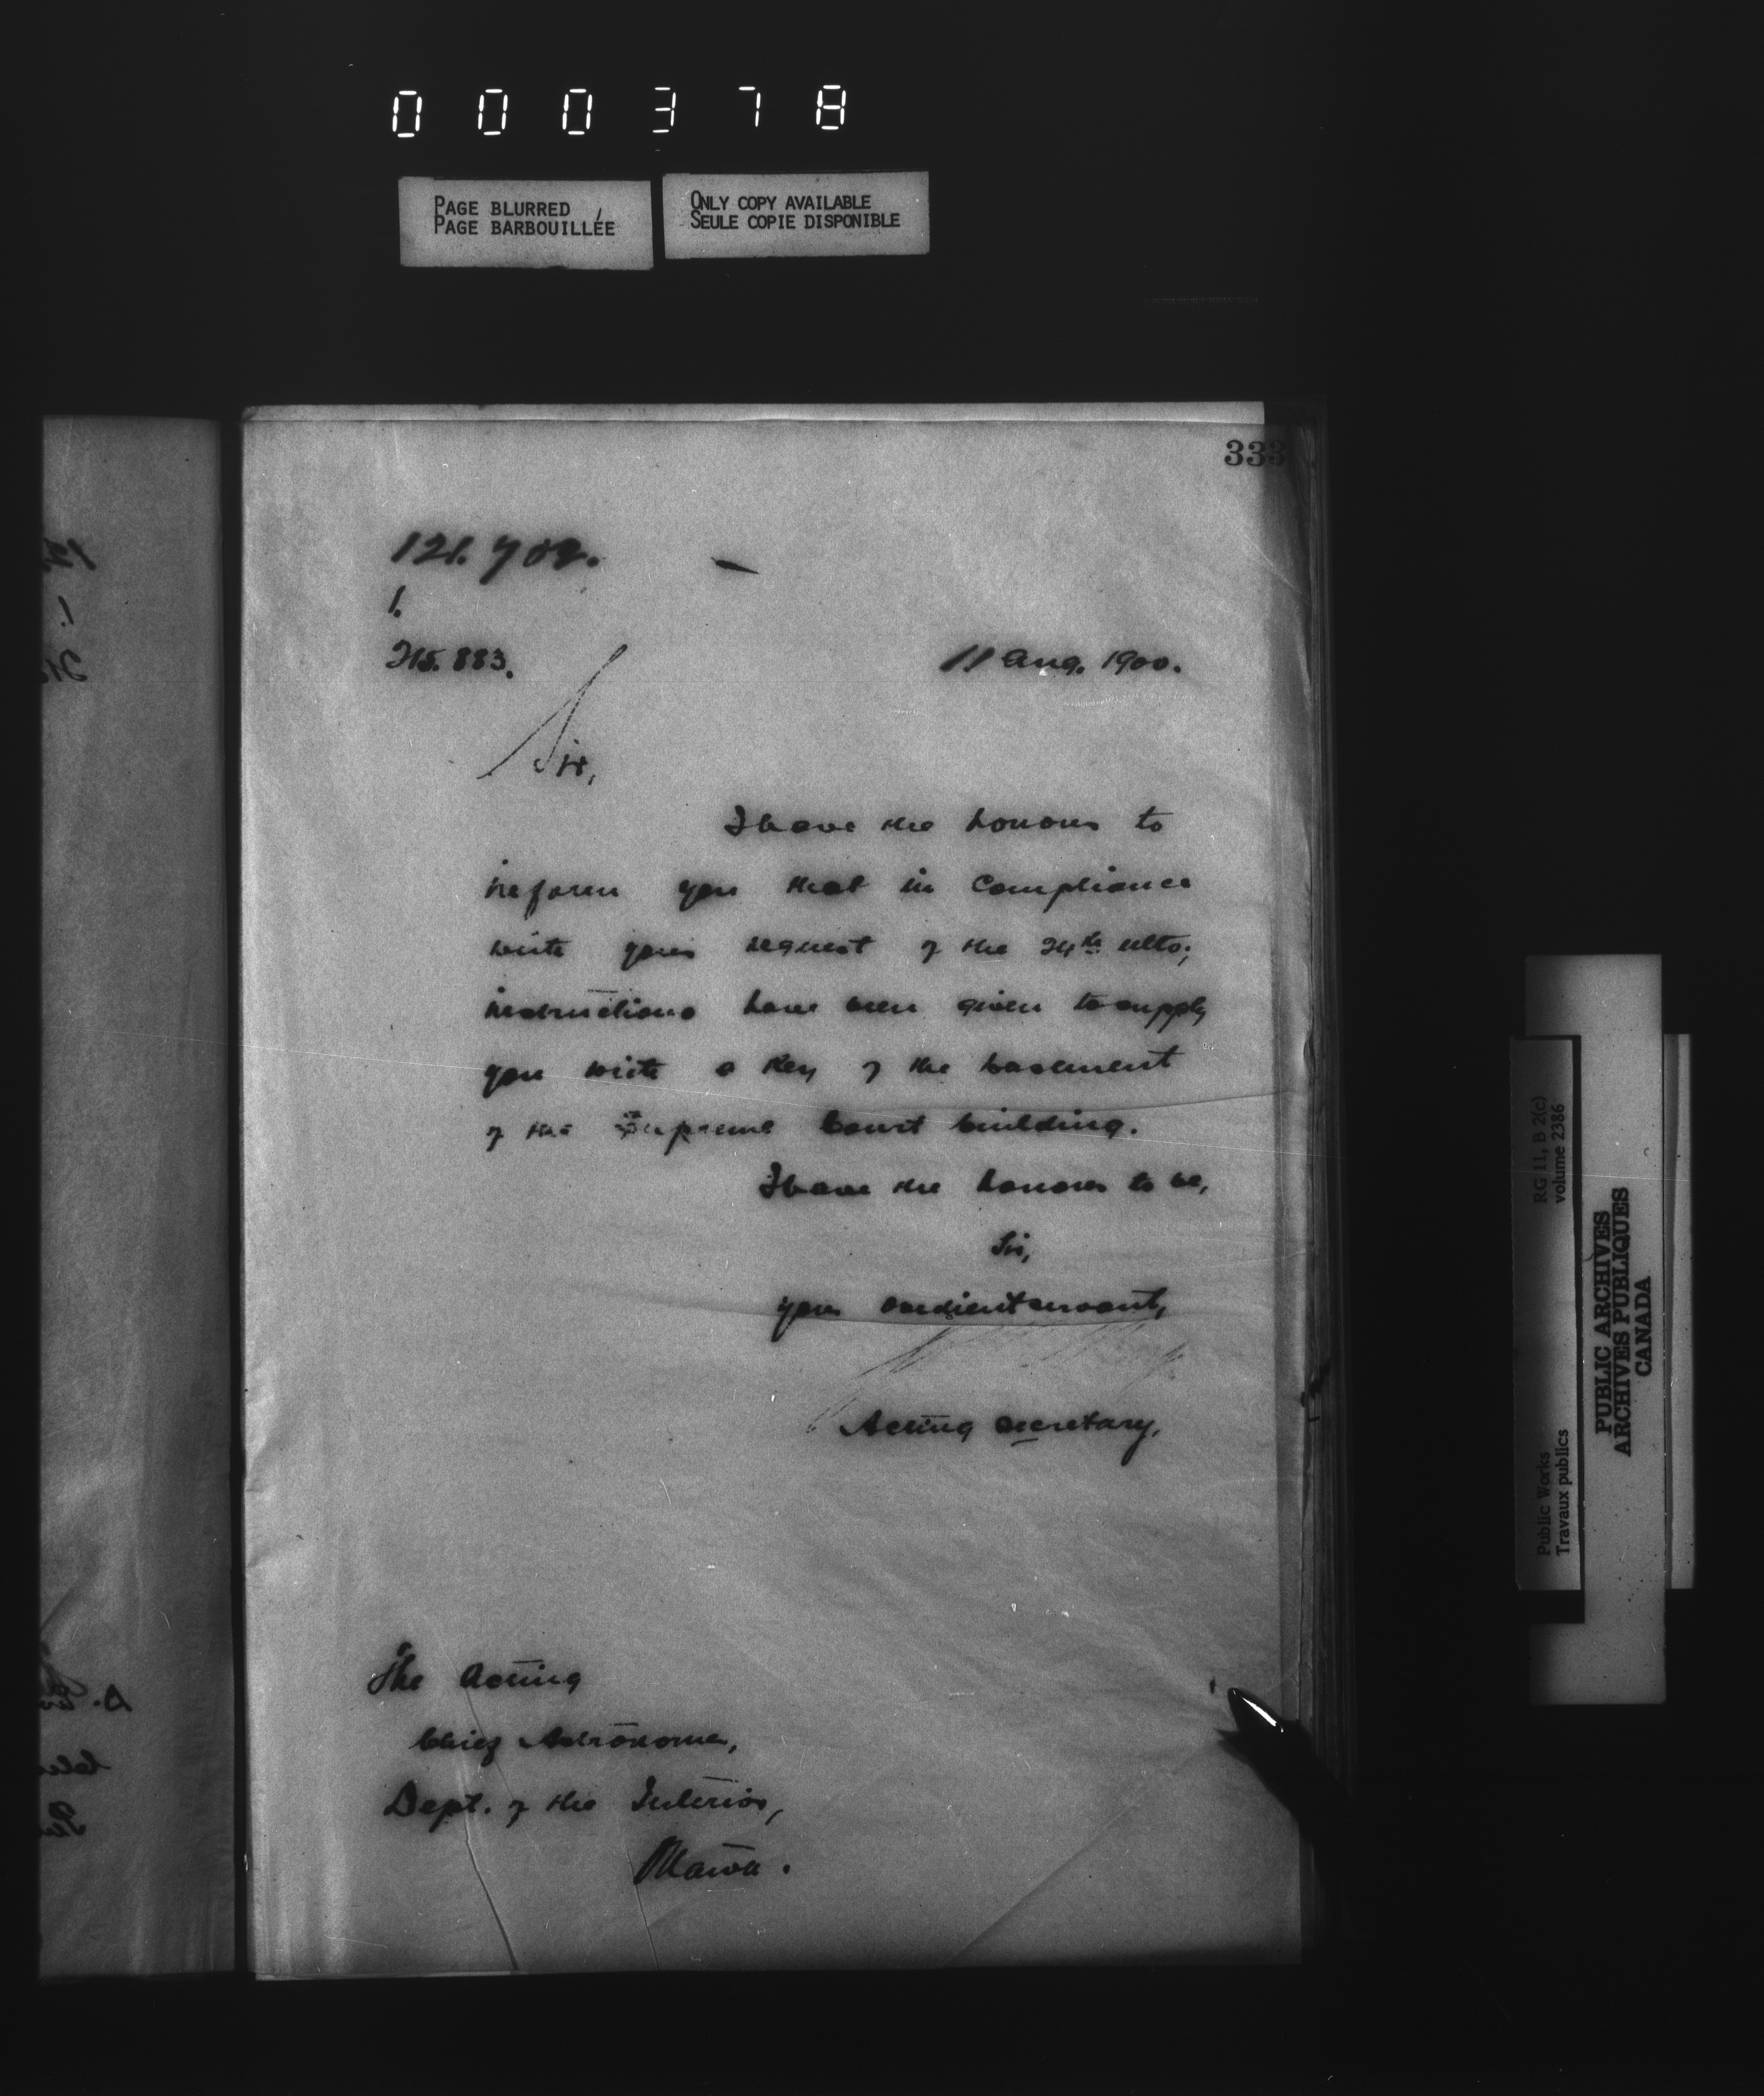 000378
PAGE BLURRED
PAGE BARBOUILLÉE
ONLY COPY AVAILABLE
SEULE COPIE DISPONIBLE
333
1.
215.883.
11 Aug. 1900.
Sir,
I have the honour to
inform you that in compliance
with your request of the 24th ulto;
instructions have been given to supply
you with a key of the basement
of the Supreme Court building.
I have the honour to be,
Sir,
your obedient servant,
Acting Secretary,
The Acting
Chief Astronomer,
Dept. of the Interior,
Ottawa.
RG 11, B 2(c)
volume 2386
Public Works
Travaux publics
PUBLIC ARCHIVES
ARCHIVES PUBLIQUES
CANADA